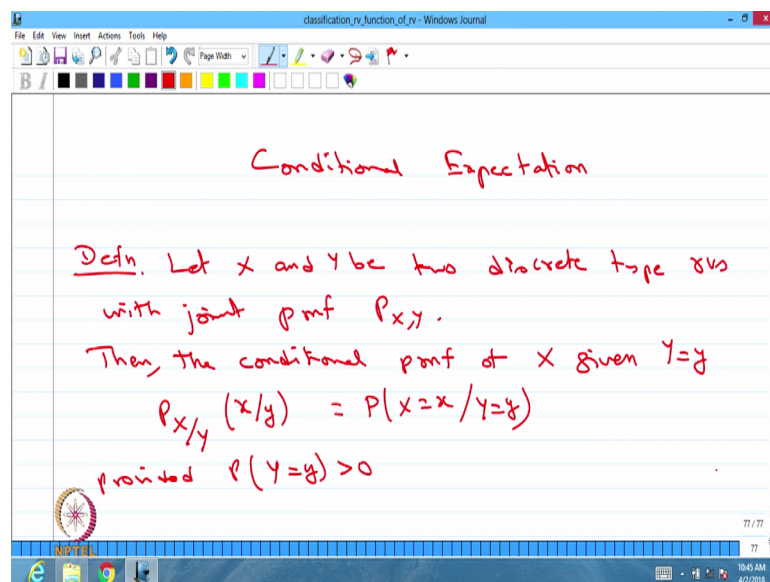 classification_rv_function_of_rv - Windows Journal
File Edit View Insert Actions Tools Help
Page Width
B I
Conditional Expectation
Defn. Let X and Y be two discrete type rvs
with joint pmf P_{X,Y}.
Then, the conditional pmf of X given Y=y
P_{X/Y} (x/y) = P(X=x/Y=y)
provided P(Y=y)>0
NPTEL
77 / 77
77
10:45 AM